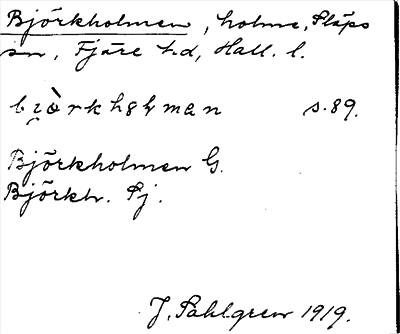 Björkholmen, holme, Släps
sn, Fjäre hd, Hall. l.
bi̯ò̱rkhɷlman s. 89.
Björkholmen G.
Björkh. Sj.
J. Sahlgren 1919.